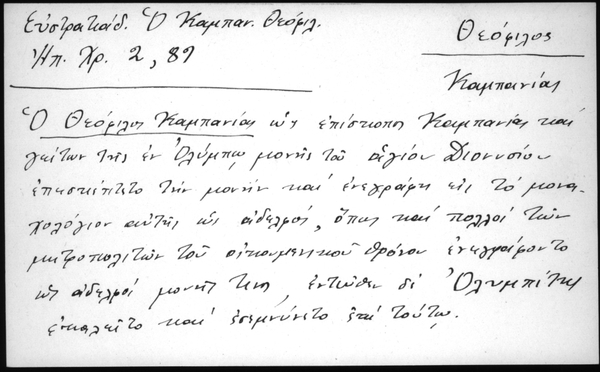 Εὐστρατιάδ. Ὁ Καμπαν. Θεόφιλ.
Ἠπ. Χρ. 2, 87
Θεόφιλος
Καμπανίας
Ὁ Θεόφιλος Καμπανίας ὡς ἐπίσκοπος Καμπανίας καὶ
γείτων τῆς ἐν Ὀλύμπῳ μονῆς τοῦ ἁγίου Διονυσίου
ἐπεσκέπτετο τὴν μονὴν καὶ ἐνεγράφη εἰς τὸ μονα-
χολόγιον αὐτῆς ὡς ἀδελφός, ὅπως καὶ πολλοὶ τῶν
μητροπολιτῶν τοῦ οἰκουμενικοῦ θρόνου ἐνεγράφοντο
ὡς ἀδελφοὶ μονῆς τινος, ἐντεῦθεν δὲ Ὀλυμπίτης
ἐκαλεῖτο καὶ ἐσεμνύνετο ἐπὶ τούτῳ.